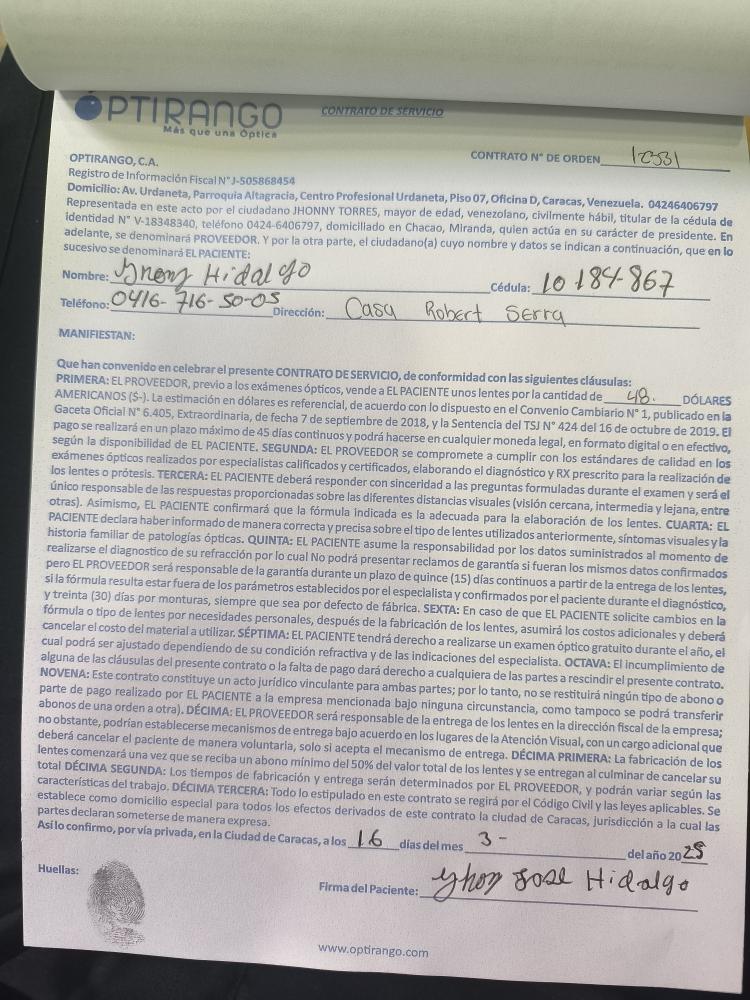 OPTIRANGO
Más que una Óptica
CONTRATO DE SERVICIO
CONTRATO N° DE ORDEN 12531
OPTIRANGO, C.A.
Registro de Información Fiscal N° J-505868454
Domicilio: Av. Urdaneta, Parroquia Altagracia, Centro Profesional Urdaneta, Piso 07, Oficina D, Caracas, Venezuela. 04246406797
Representada en este acto por el ciudadano JHONNY TORRES, mayor de edad, venezolano, civilmente hábil, titular de la cédula de
identidad N° V-18348340, teléfono 0424-6406797, domiciliado en Chacao, Miranda, quien actúa en su carácter de presidente. En
adelante, se denominará PROVEEDOR. Y por la otra parte, el ciudadano(a) cuyo nombre y datos se indican a continuación, que en lo
sucesivo se denominará EL PACIENTE:
Nombre: Hidalgo Cédula: 10 184-867
Teléfono: 0416-716-50-05 Dirección: Casa Robert Serra
MANIFIESTAN:
Que han convenido en celebrar el presente CONTRATO DE SERVICIO, de conformidad con las siguientes cláusulas:
PRIMERA: EL PROVEEDOR, previo a los exámenes ópticos, vende a EL PACIENTE unos lentes por la cantidad de 48. DÓLARES
AMERICANOS ($-). La estimación en dólares es referencial, de acuerdo con lo dispuesto en el Convenio Cambiario N° 1, publicado en la
Gaceta Oficial N° 6.405, Extraordinaria, de fecha 7 de septiembre de 2018, y la Sentencia del TSJ N° 424 del 16 de octubre de 2019. El
pago se realizará en un plazo máximo de 45 días continuos y podrá hacerse en cualquier moneda legal, en formato digital o en efectivo,
según la disponibilidad de EL PACIENTE. SEGUNDA: EL PROVEEDOR se compromete a cumplir con los estándares de calidad en los
exámenes ópticos realizados por especialistas calificados y certificados, elaborando el diagnóstico y RX prescrito para la realización de
los lentes o prótesis. TERCERA: EL PACIENTE deberá responder con sinceridad a las preguntas formuladas durante el examen y será el
único responsable de las respuestas proporcionadas sobre las diferentes distancias visuales (visión cercana, intermedia y lejana, entre
otras). Asimismo, EL PACIENTE confirmará que la fórmula indicada es la adecuada para la elaboración de los lentes. CUARTA: EL
PACIENTE declara haber informado de manera correcta y precisa sobre el tipo de lentes utilizados anteriormente, síntomas visuales y la
historia familiar de patologías ópticas. QUINTA: EL PACIENTE asume la responsabilidad por los datos suministrados al momento de
realizarse el diagnostico de su refracción por lo cual No podrá presentar reclamos de garantía si fueran los mismos datos confirmados
pero EL PROVEEDOR será responsable de la garantía durante un plazo de quince (15) días continuos a partir de la entrega de los lentes,
si la fórmula resulta estar fuera de los parámetros establecidos por el especialista y confirmados por el paciente durante el diagnóstico,
y treinta (30) días por monturas, siempre que sea por defecto de fábrica. SEXTA: En caso de que EL PACIENTE solicite cambios en la
fórmula o tipo de lentes por necesidades personales, después de la fabricación de los lentes, asumirá los costos adicionales y deberá
cancelar el costo del material a utilizar. SÉPTIMA: EL PACIENTE tendrá derecho a realizarse un examen óptico gratuito durante el año, el
cual podrá ser ajustado dependiendo de su condición refractiva y de las indicaciones del especialista. OCTAVA: El incumplimiento de
alguna de las cláusulas del presente contrato o la falta de pago dará derecho a cualquiera de las partes a rescindir el presente contrato.
NOVENA: Este contrato constituye un acto jurídico vinculante para ambas partes; por lo tanto, no se restituirá ningún tipo de abono o
parte de pago realizado por EL PACIENTE a la empresa mencionada bajo ninguna circunstancia, como tampoco se podrá transferir
abonos de una orden a otra). DÉCIMA: EL PROVEEDOR será responsable de la entrega de los lentes en la dirección fiscal de la empresa;
no obstante, podrían establecerse mecanismos de entrega bajo acuerdo en los lugares de la Atención Visual, con un cargo adicional que
deberá cancelar el paciente de manera voluntaria, solo si acepta el mecanismo de entrega. DÉCIMA PRIMERA: La fabricación de los
lentes comenzará una vez que se reciba un abono mínimo del 50% del valor total de los lentes y se entregan al culminar de cancelar su
total DÉCIMA SEGUNDA: Los tiempos de fabricación y entrega serán determinados por EL PROVEEDOR, y podrán variar según las
características del trabajo. DÉCIMA TERCERA: Todo lo estipulado en este contrato se regirá por el Código Civil y las leyes aplicables. Se
establece como domicilio especial para todos los efectos derivados de este contrato la ciudad de Caracas, jurisdicción a la cual las
partes declaran someterse de manera expresa.
Así lo confirmo, por vía privada, en la Ciudad de Caracas, a los 16 días del mes 3- del año 2025
Huellas:
Firma del Paciente: Yhon Jose Hidalgo
www.optirango.com